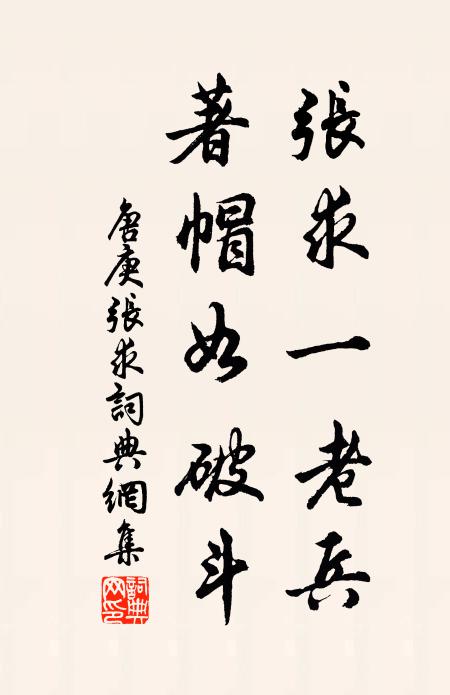 張求一老兵
著帽如破斗
唐庚張求詞典網集
詞典網印